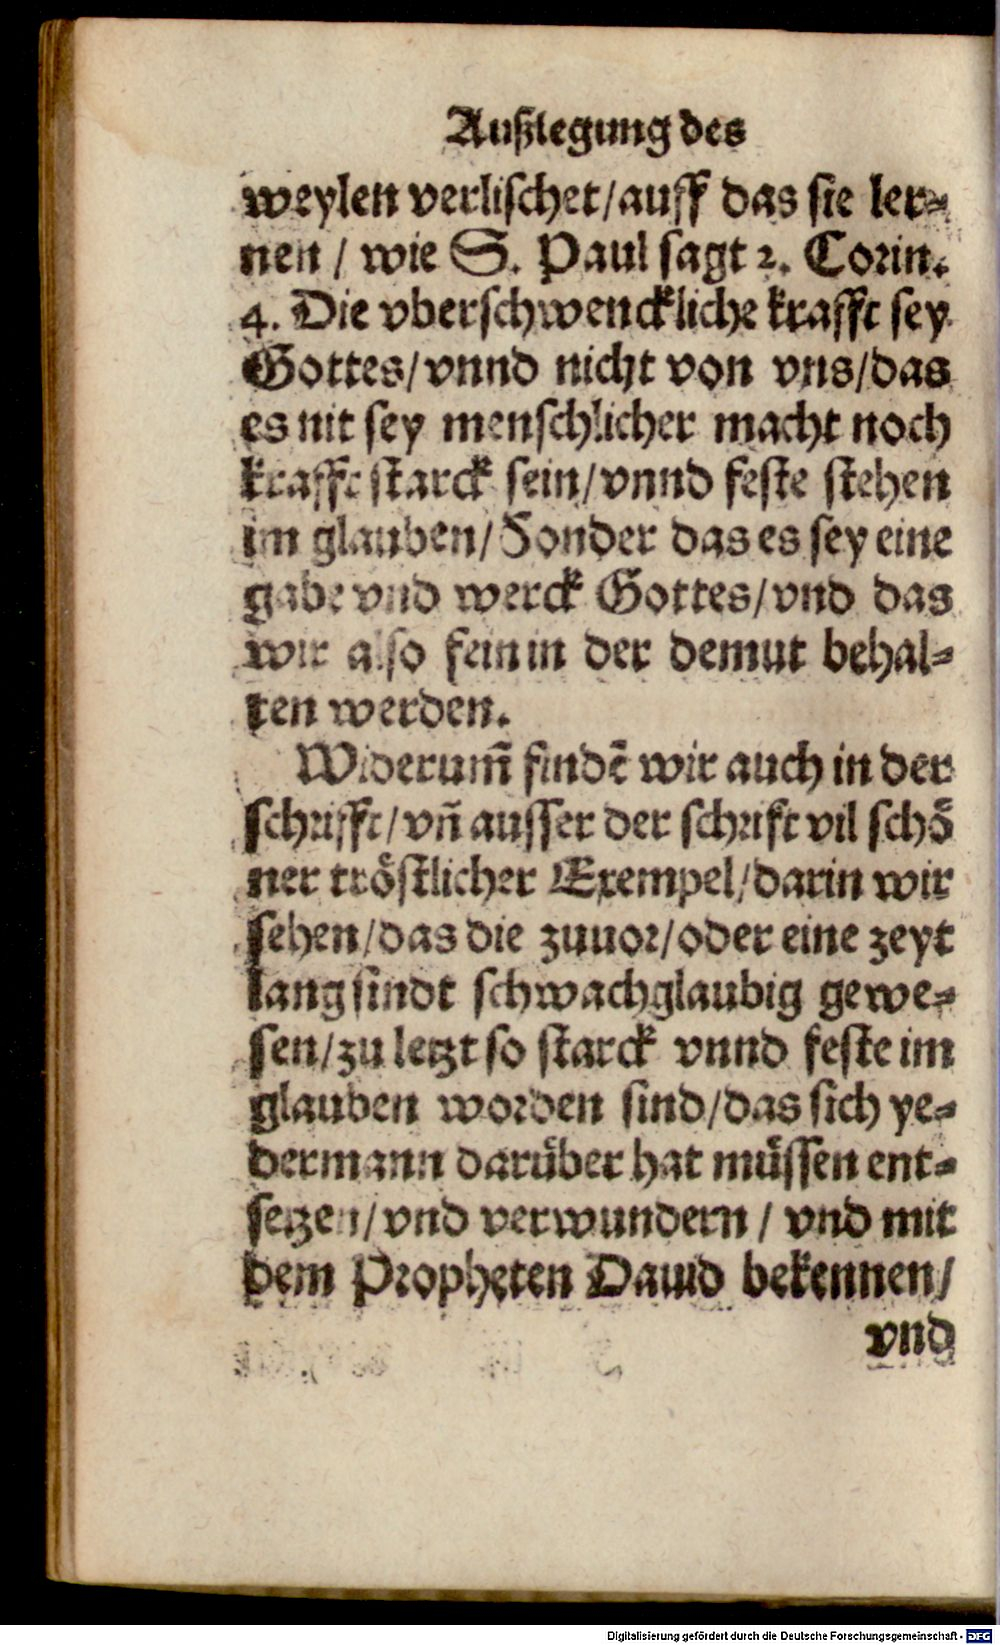 Außlegung des
weylen verlischet/auff das sie ler⸗
nen / wie S. Paul sagt 2. Corin.
4. Die vberschwenckliche krafft sey
Gottes/vnnd nicht von vns/das
es nit sey menschlicher macht noch
krafft starck sein/vnnd feste stehen
im glauben/Sonder das es sey eine
gabe vnd werck Gottes/vnd das
wir also fein in der demut behal⸗
ten werden.
Widerum̃ findẽ wir auch in der
schrifft/vñ ausser der schrift vil schö̃
ner tröstlicher Exempel/darin wir
sehen/das die zuuor/oder eine zeyt
lang sindt schwachglaubig gewe⸗
sen/zu letzt so starck vnnd feste im
glauben worden sind/das sich ye⸗
dermann darüber hat müssen ent⸗
setzen/vnd verwundern / vnd mit
dem Propheten Dauid bekennen/
vnd
Digitalisierung gefördert durch die Deutsche Forschungsgemeinschaft - DFG